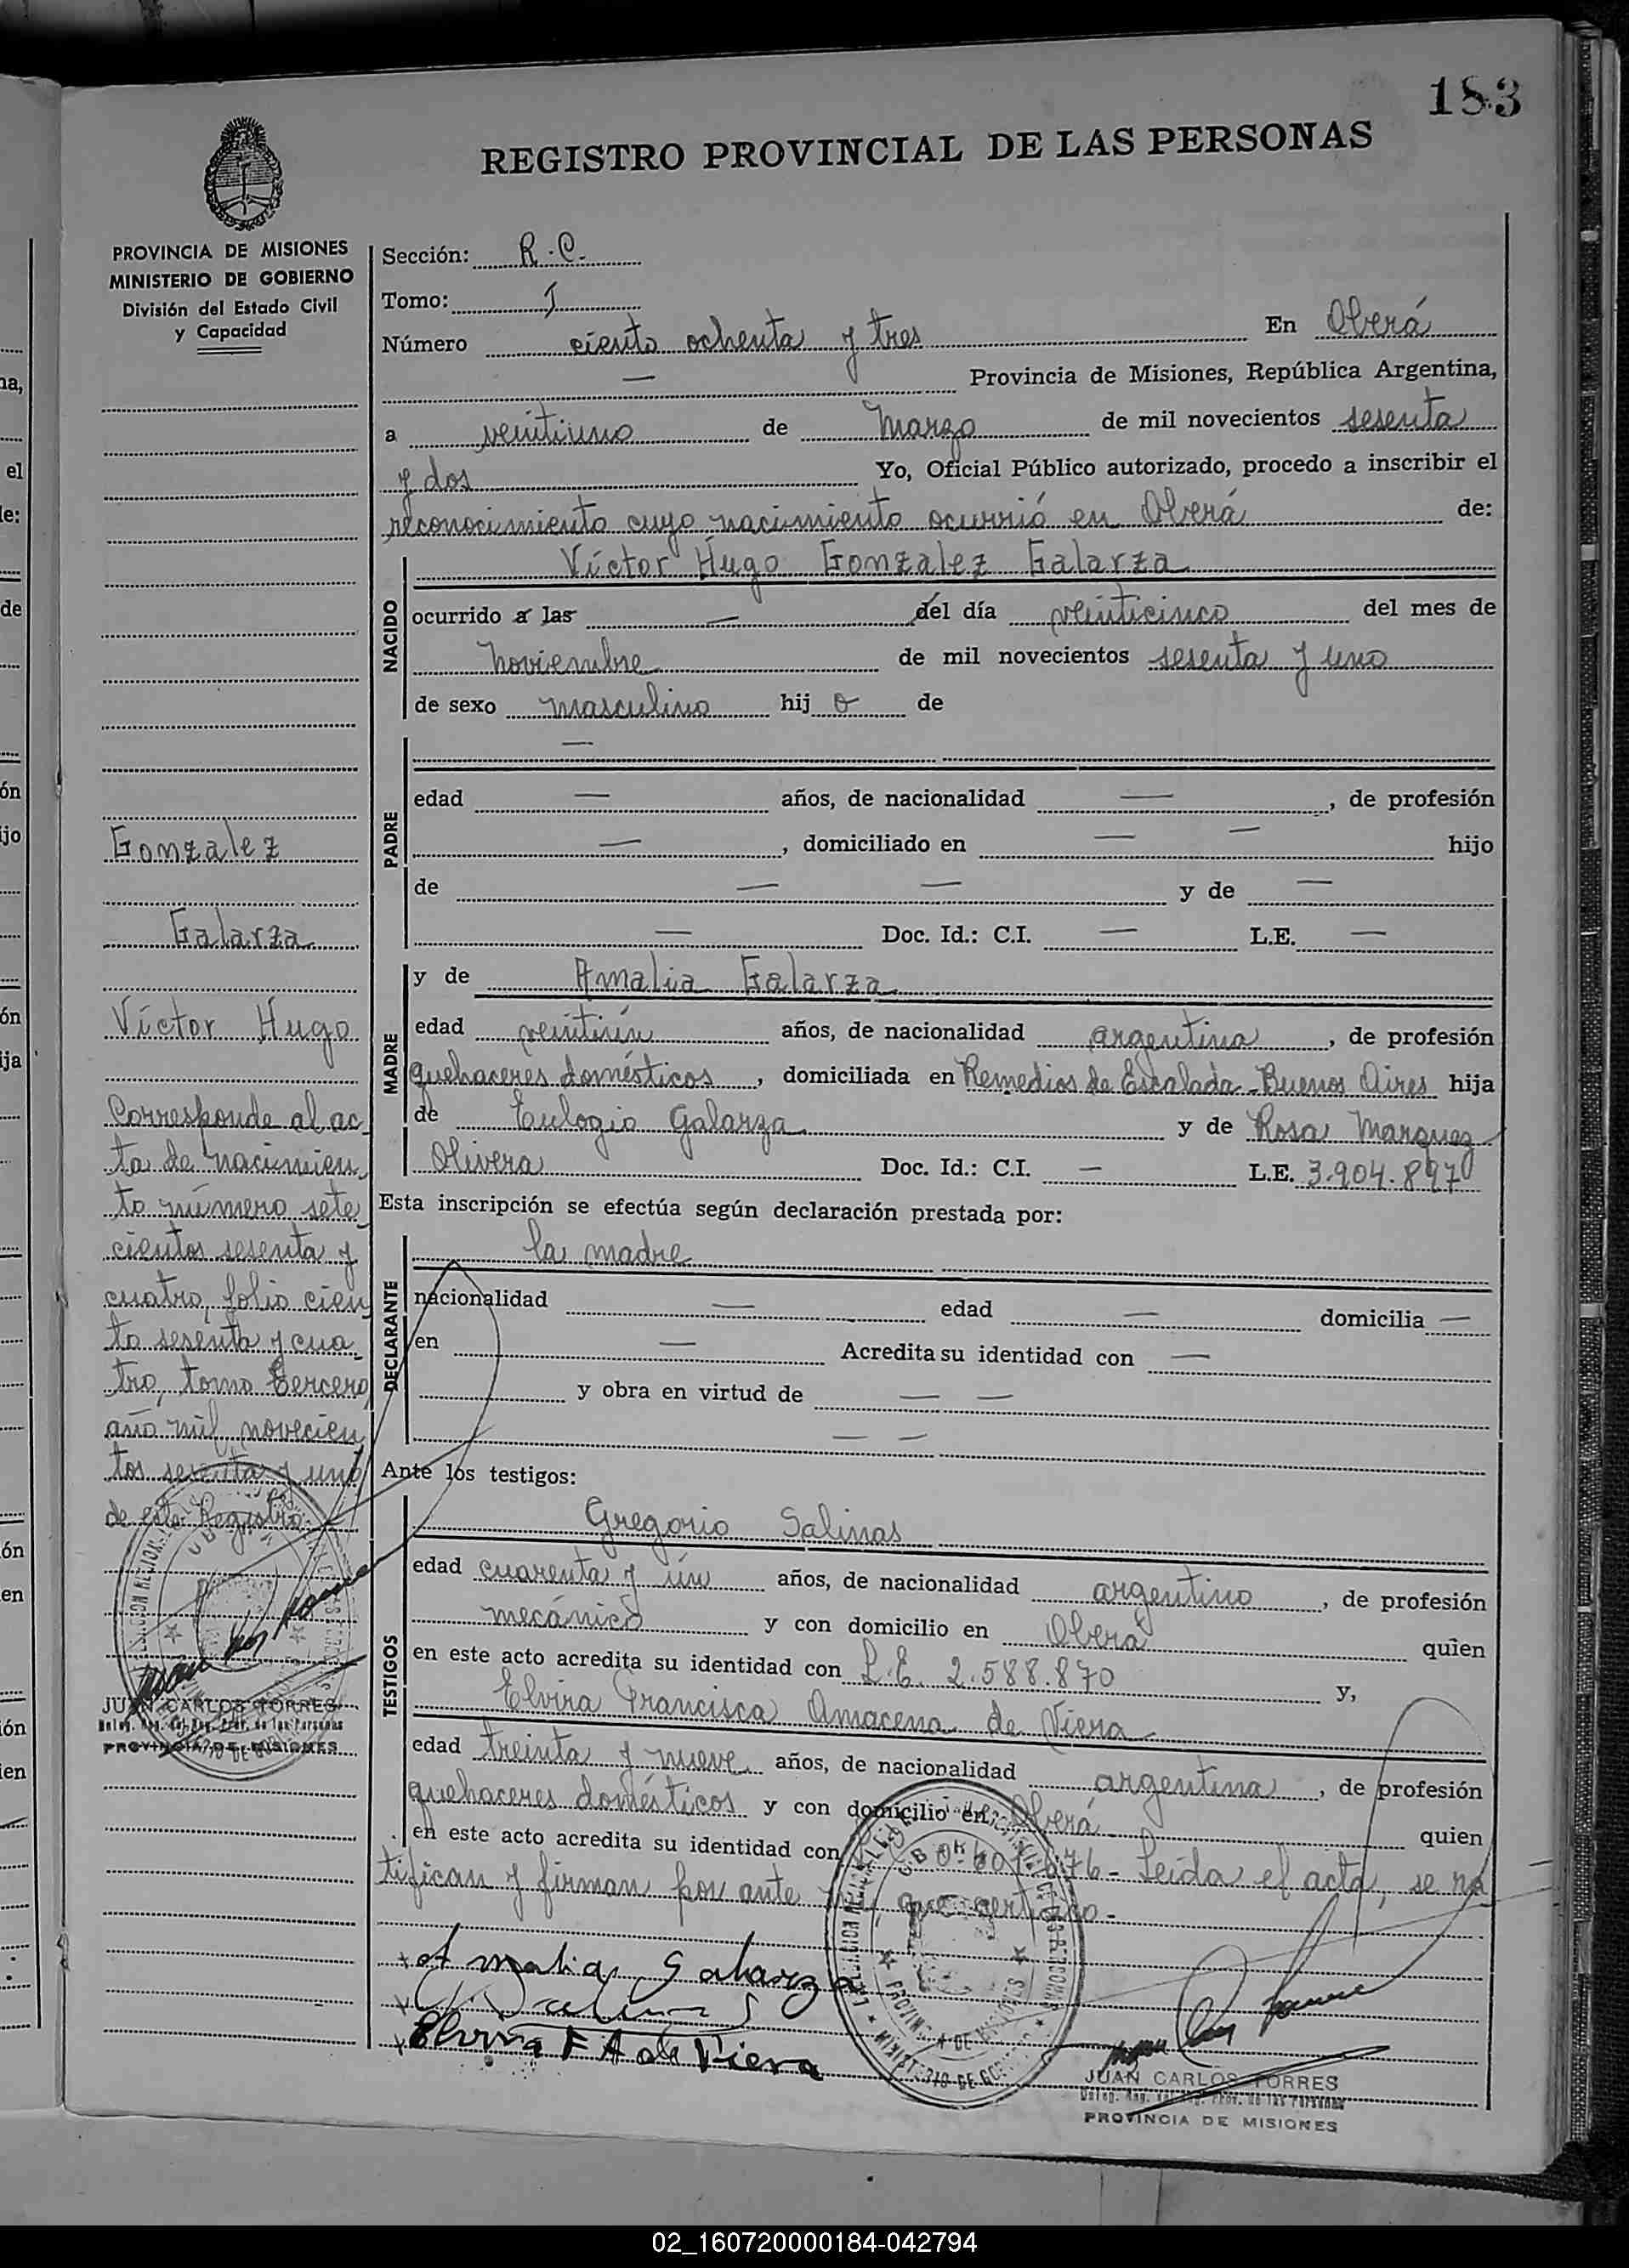 183
REGISTRO PROVINCIAL DE LAS PERSONAS
PROVINCIA DE MISIONES
MINISTERIO DE GOBIERNO
División del Estado Civil
y Capacidad
Gonzalez
Galarza
Víctor Hugo
Corresponde al ac
ta de nacimien
to número sete
cientos sesenta y
cuatro, folio cien
to sesenta y cua
tro, tomo tercero,
año mil novecien
tos sesenta y uno
de este Registro.
JUAN CARLOS TORRES
PROVINCIA DE MISIONES
Sección: R.C.
Tomo: I
Número ciento ochenta y tres En Oberá
— Provincia de Misiones, República Argentina,
a veintiuno de Marzo de mil novecientos sesenta
y dos Yo, Oficial Público autorizado, procedo a inscribir el
reconocimiento cuyo nacimiento ocurrió en Oberá de:
NACIDO
Víctor Hugo Gonzalez Galarza
ocurrido a las — del día veinticinco del mes de
noviembre de mil novecientos sesenta y uno
de sexo masculino hij o de
PADRE
—
edad — años, de nacionalidad —, de profesión
—, domiciliado en — — hijo
de — — y de —
— Doc. Id.: C.I. — L.E. —
MADRE
y de Amalia Galarza
edad veintiún años, de nacionalidad argentina, de profesión
quehaceres domésticos, domiciliada en Remedios de Escalada-Buenos Aires hija
de Eulogio Galarza y de Rosa Marquez
Olivera Doc. Id.: C.I. — L.E. 3.904.897
Esta inscripción se efectúa según declaración prestada por:
DECLARANTE
la madre
nacionalidad — edad — domicilia —
en — Acredita su identidad con —
y obra en virtud de — —
— —
Ante los testigos:
TESTIGOS
Gregorio Salinas
edad cuarenta y un años, de nacionalidad argentino, de profesión
mecánico y con domicilio en Oberá quien
en este acto acredita su identidad con L.E. 2.588.870 y,
Elvira Francisca Amacena de Viera
edad treinta y nueve años, de nacionalidad argentina, de profesión
quehaceres domésticos y con domicilio en Oberá quien
en este acto acredita su identidad con Leída el acta, se ra
tifican y firman por ante que certifico.-
Amalia Galarza
Elvira F A de Viera
JUAN CARLOS TORRES
PROVINCIA DE MISIONES
02_160720000184-042794